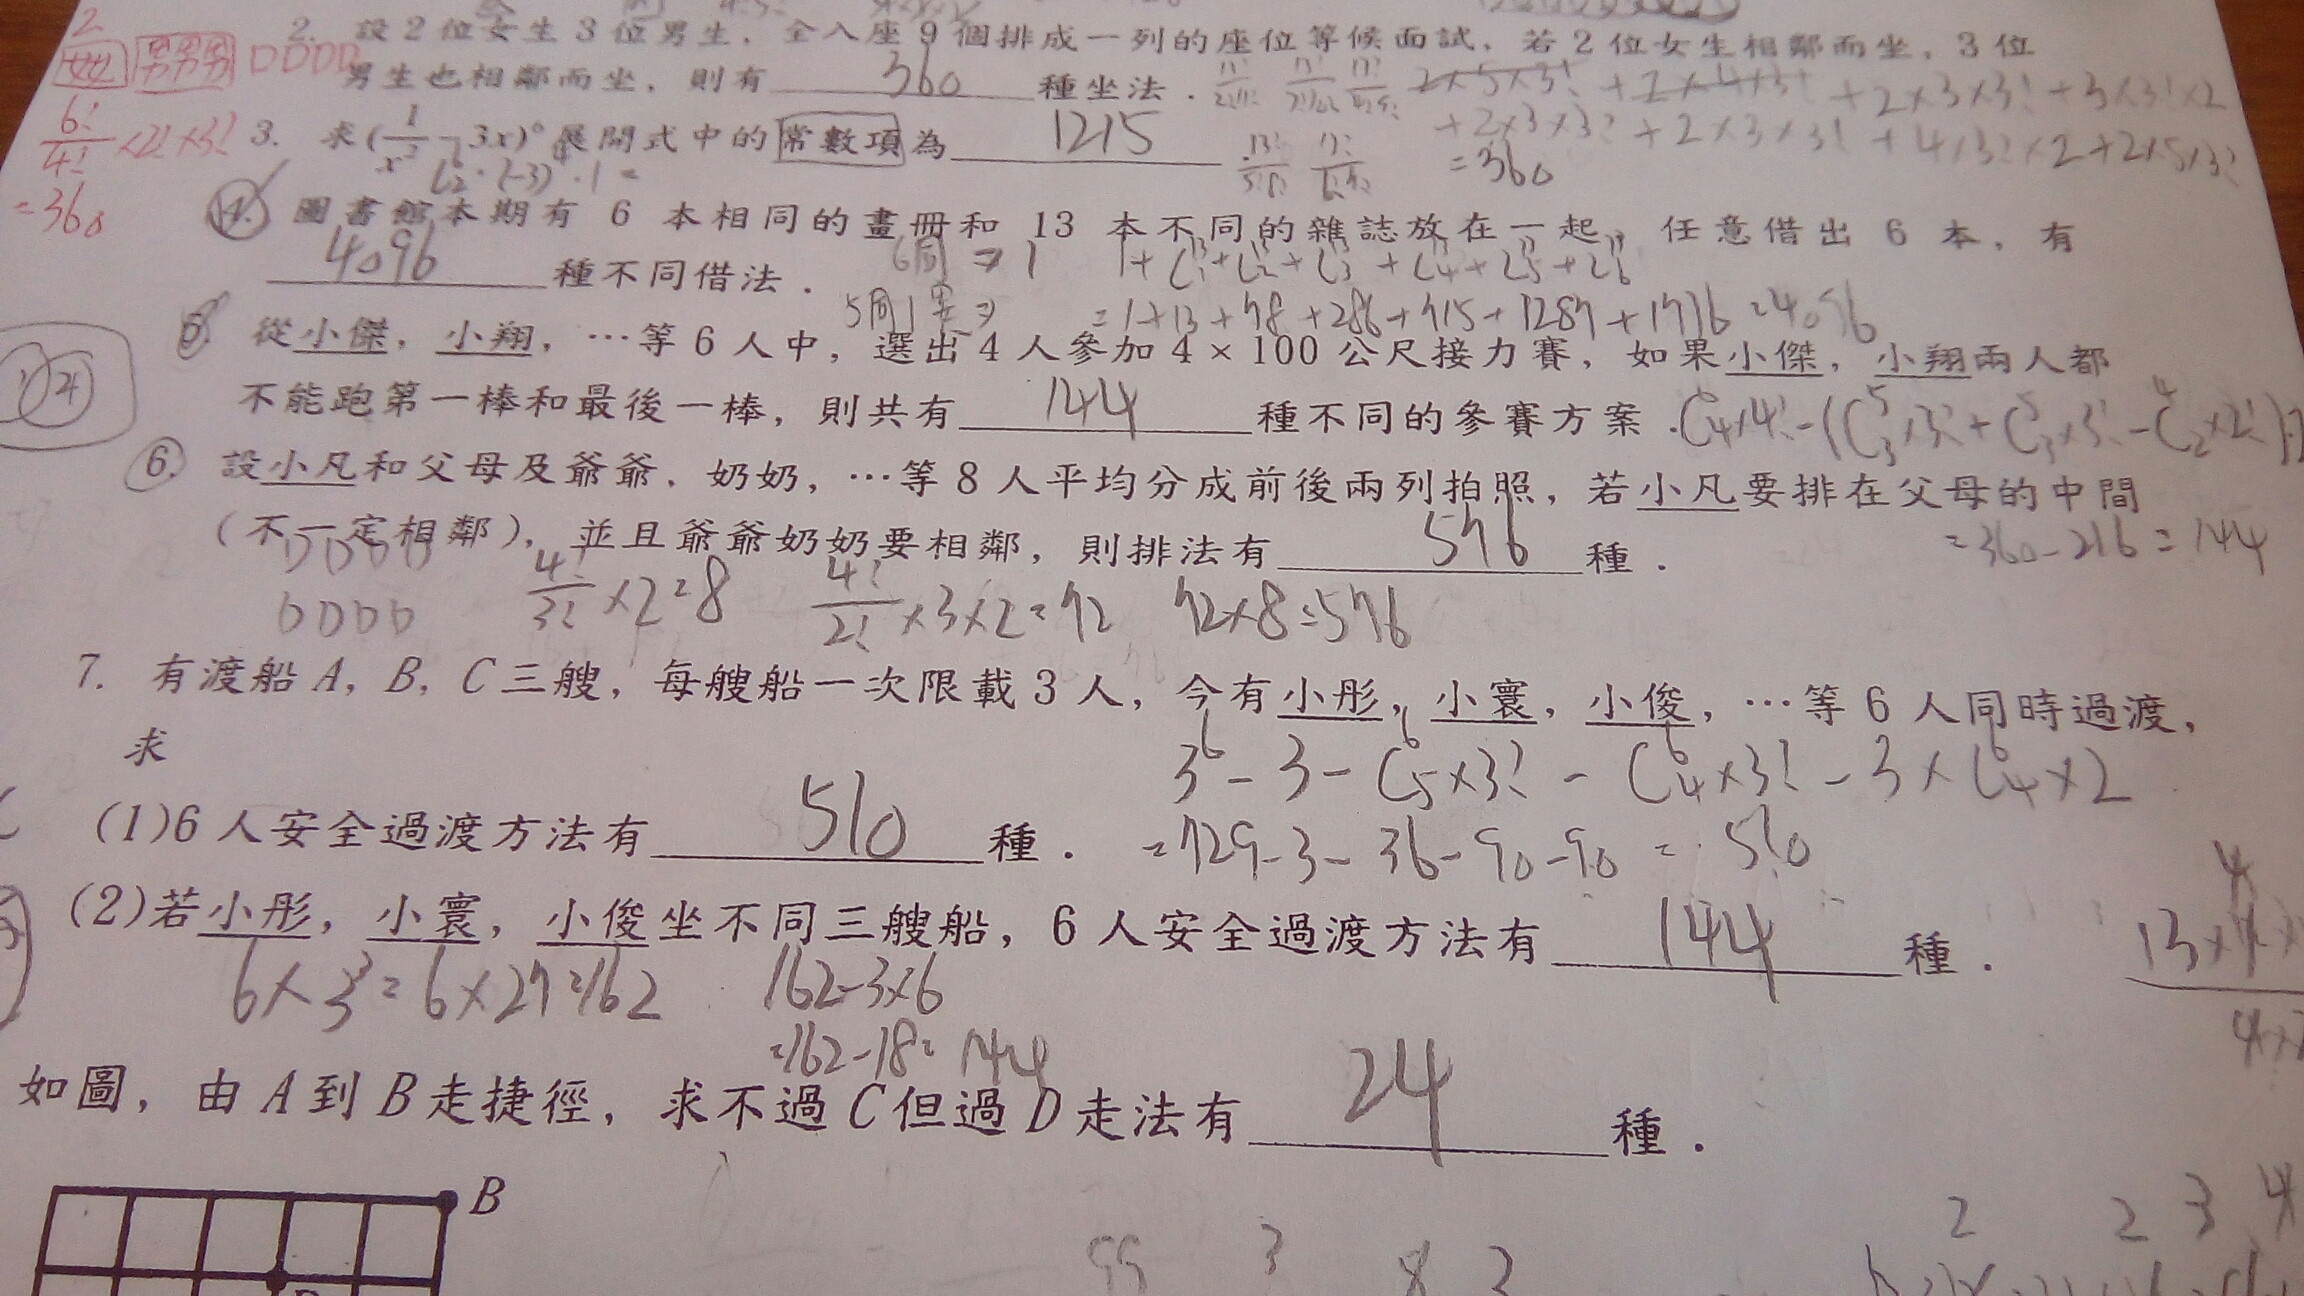 2. 設2位女生3位男生，全入座9個排成一列的座位等候面試，若2位女生相鄰而坐，3位
男生也相鄰而坐，則有 360 種坐法．
女女 男男男 □□□□
6!/4! ×2!×3!
=360
+2×3×3!+3×3!×2
+2×3×3!+2×3×3!+4×3!×2+2×5×3!
=360
3. 求(1/x² - 3x)⁶展開式中的常數項為 1215
4. 圖書館本期有 6 本相同的畫冊和 13 本不同的雜誌放在一起，任意借出 6 本，有
4096 種不同借法．
6同⇒1
1+C¹³₁+C¹³₂+C¹³₃+C¹³₄+C¹³₅+C¹³₆
=1+13+78+286+715+1287+1716=4096
5. 從小傑，小翔，…等6人中，選出4人參加4×100公尺接力賽，如果小傑，小翔兩人都
不能跑第一棒和最後一棒，則共有 144 種不同的參賽方案．
C⁶₄×4!-(C⁵₃×3!+C⁵₃×3!-C⁴₂×2!)
=360-216=144
6. 設小凡和父母及爺爺，奶奶，…等8人平均分成前後兩列拍照，若小凡要排在父母的中間
(不一定相鄰)，並且爺爺奶奶要相鄰，則排法有 576 種．
4!/3! ×2=8 4!/2! ×3×2=72 72×8=576
7. 有渡船A，B，C三艘，每艘船一次限載3人，今有小彤，小寰，小俊，…等6人同時過渡，
求
3⁶-3-C⁶₅×3!-C⁶₄×3!-3×C⁶₄×2
(1)6人安全過渡方法有 510 種．
=729-3-36-90-90=510
(2)若小彤，小寰，小俊坐不同三艘船，6人安全過渡方法有 144 種．
6×3³=6×27=162 162-3×6
=162-18=144
如圖，由A到B走捷徑，求不過C但過D走法有 24 種．
B